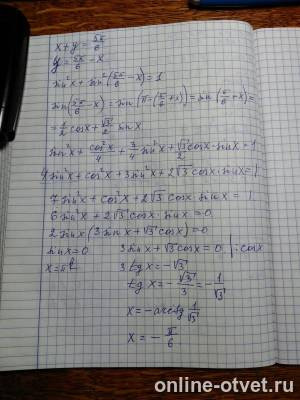 x + y = 5π/6
y = 5π/6 - x
sin²x + sin²(5π/6 - x) = 1
sin(5π/6 - x) = sin(π - (π/6 + x)) = sin(π/6 + x) =
= 1/2 cosx + √3/2 sinx
sin²x + cos²x/4 + 3/4 sin²x + √3/2 cosx · sinx = 1
4 sin²x + cos²x + 3sin²x + 2√3 cosx · sinx = 1
7 sin²x + cos²x + 2√3 cosx sinx = 1
6 sin²x + 2√3 cosx · sinx = 0
2 sinx (3 sinx + √3 cosx) = 0
sinx = 0 3 sinx + √3 cosx = 0 | : cosx
x = πk 3 tg x = -√3
tg x = -√3/3 = -1/√3
x = -arctg 1/√3
x = -π/6
online-otvet.ru